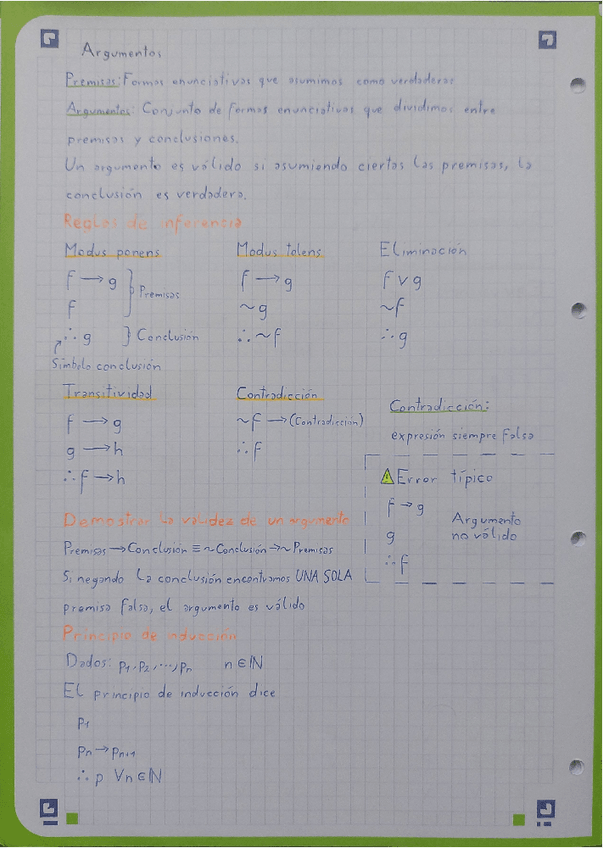 Argumentos
Premisas: Formas enunciativas que asumimos como verdaderas
Argumentos: Conjunto de formas enunciativas que dividimos entre
premisas y conclusiones.
Un argumento es válido si asumiendo ciertas las premisas, la
conclusión es verdadera.
Reglas de inferencia
Modus ponens
f → g
f
} Premisas
∴ g } Conclusión
Símbolo conclusión
Modus tolens
f → g
~g
∴ ~f
Eliminación
f ∨ g
~f
∴ g
Transitividad
f → g
g → h
∴ f → h
Contradicción
~f → (Contradicción)
∴ f
Contradicción:
expresión siempre falsa
⚠ Error típico
f → g
g
∴ f
Argumento
no válido
Demostrar la validez de un argumento
Premisas → Conclusión ≡ ~Conclusión → ~Premisas
Si negando la conclusión encontramos UNA SOLA
premisa falsa, el argumento es válido
Principio de inducción
Dados: p₁, p₂, ..., pₙ n ∈ ℕ
El principio de inducción dice
p₁
pₙ → pₙ₊₁
∴ p ∀n ∈ ℕ